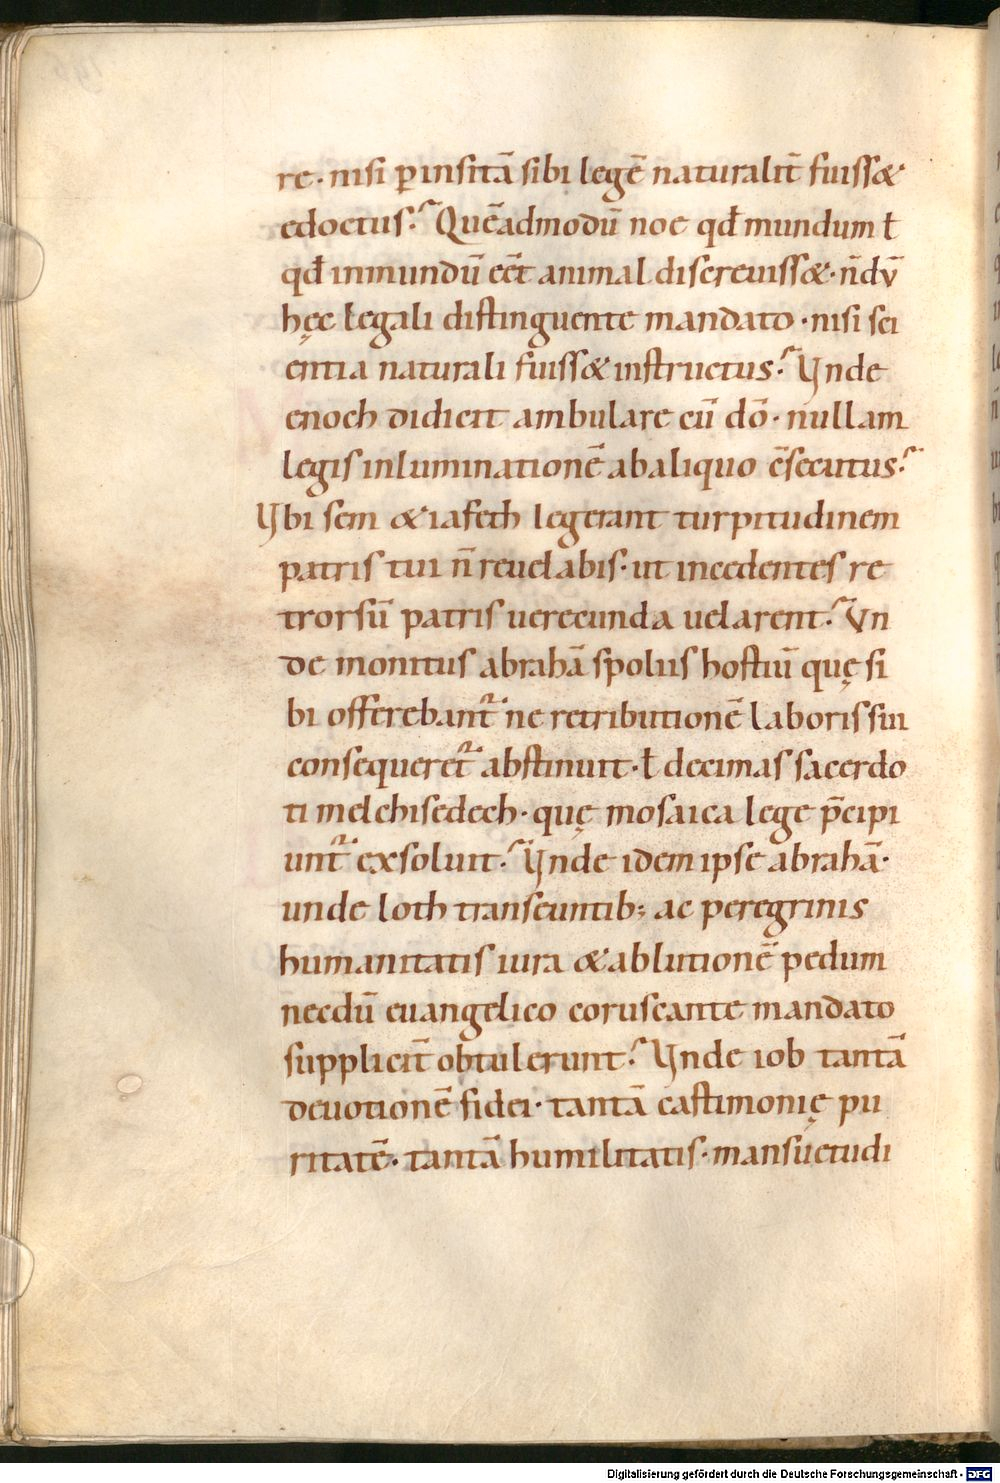 re· nisi ꝑ insitā sibi legē naturalit̄ fuiss&
edoctus? Quēadmodū noe qđ mundum ł
qđ inmundū eēt animal discreuiss&· n̄dū
hęc legali distinguente mandato· nisi sci
entia naturali fuiss& instructus? Vnde
enoch didicit ambulare cū dō· nullam
legis inluminationē ab aliquo c̄secutus?
Vbi sem & iafeth legerant turpitudinem
patris tui n̄ reuelabis· ut incedentes re
trorsū patris uerecunda uelarent? Vn
de monitus abrahā spoliis hostiū quę si
bi offerebant᷑ ne retributionē laboris sui
consequeret᷑ abstinuit· ł decimas sacerdo
ti melchisedech· quę mosaica lege p̄cipi
unt᷑ exsoluit? Vnde idem ipse abrahā·
unde loth transeuntib; ac peregrinis
humanitatis iura & ablutionē pedum
necdū euangelico coruscante mandato
supplicit̄ obtulerunt? Vnde iob tantā
deuotionē fidei· tantā castimonię pu
ritatē· tantā humilitatis· mansuetudi
Digitalisierung gefördert durch die Deutsche Forschungsgemeinschaft - DFG